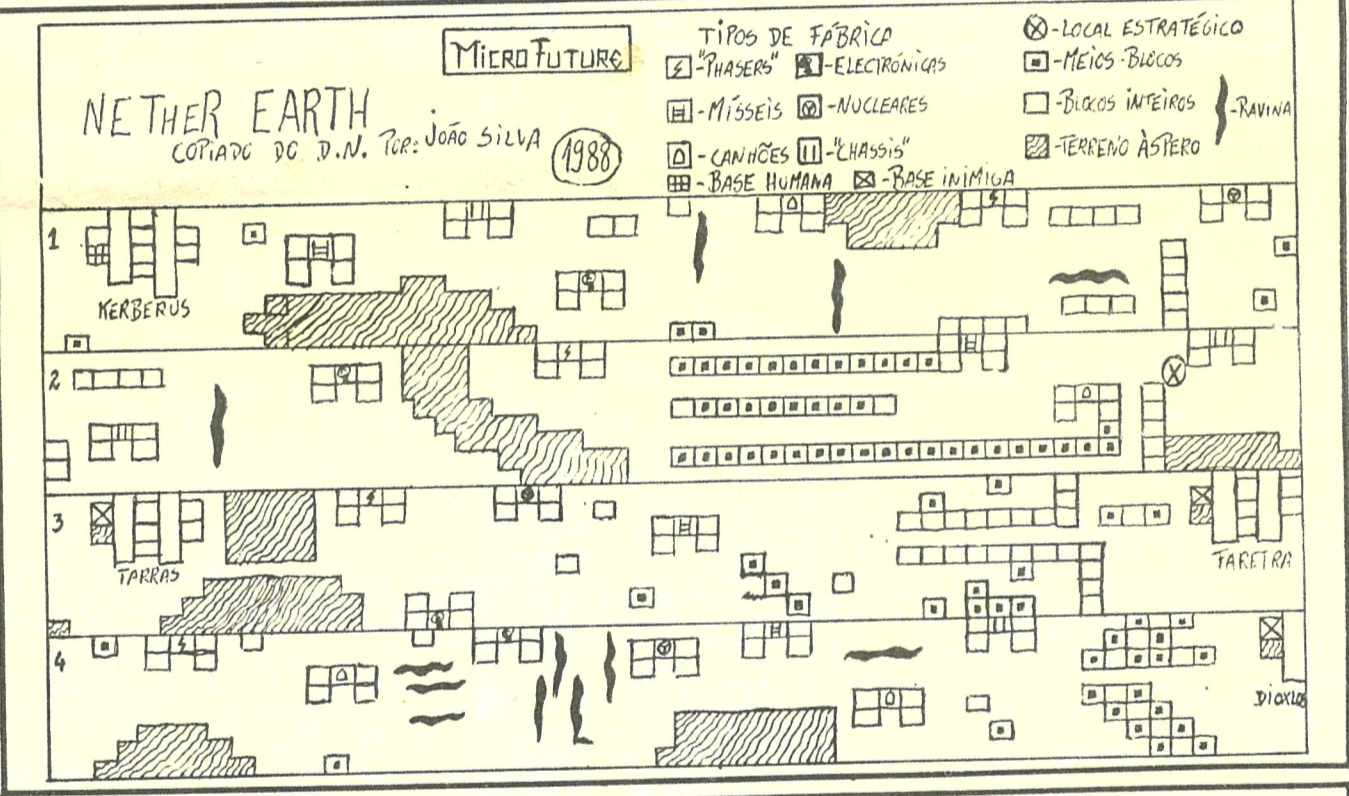 MICRO FUTURE
NETHER EARTH
COPIADO DO D.N. POR: JOÃO SILVA
1988
TIPOS DE FÁBRICA
-"PHASERS" -ELECTRÓNICAS
-MÍSSEIS -NUCLEARES
-CANHÕES -"CHASSIS"
-BASE HUMANA -BASE INIMIGA
-LOCAL ESTRATÉGICO
-MEIOS-BLOCOS
-BLOCOS INTEIROS -RAVINA
-TERRENO ÀSPERO
1
KERBERUS
2
3
TARRAS
TARETRA
4
DIOXLOS